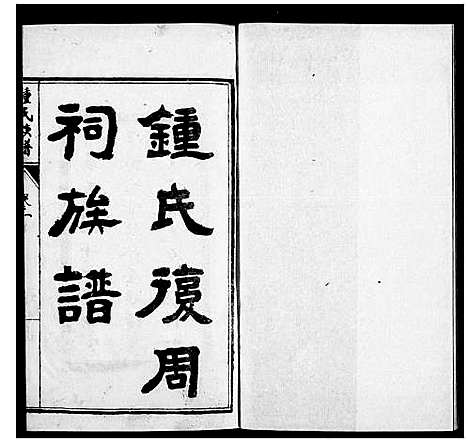 鍾氏復周
祠族譜
鍾氏族譜
卷一